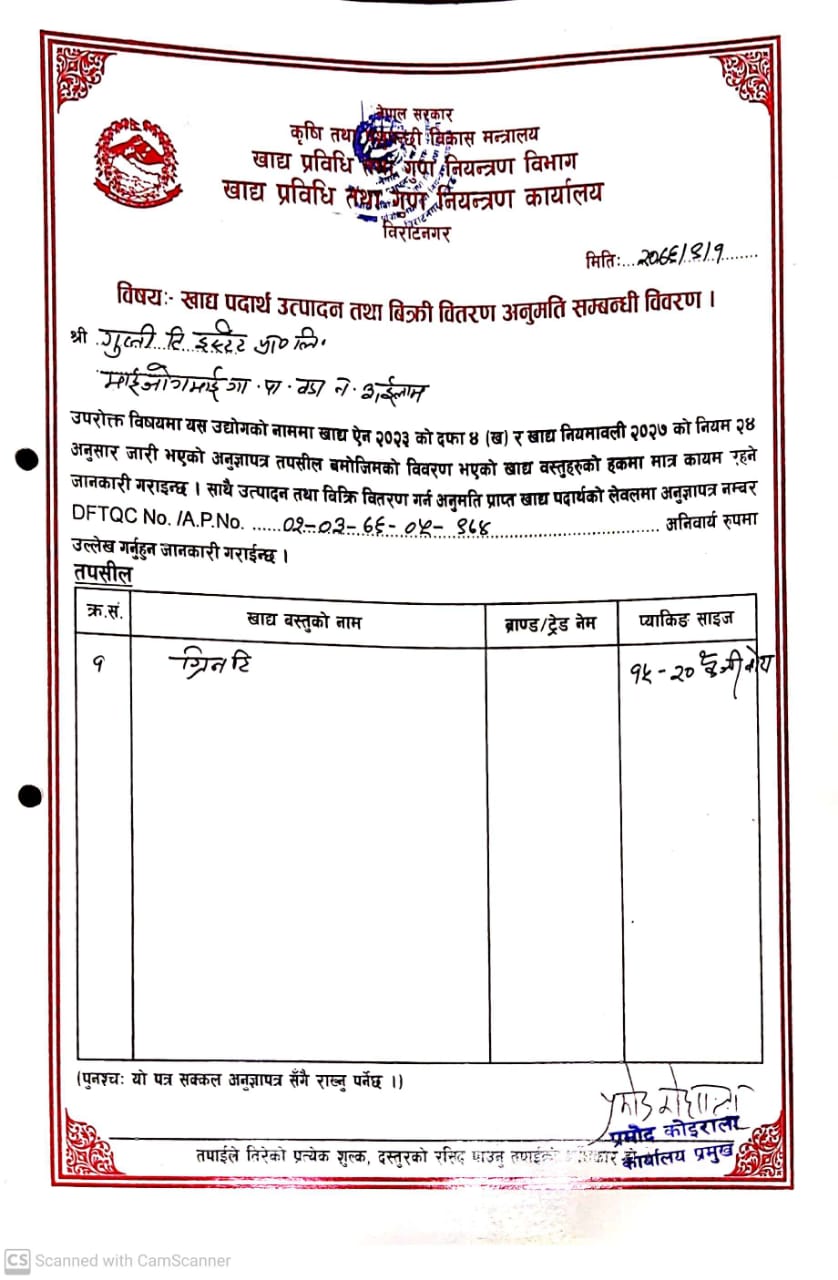 नेपाल सरकार
कृषि तथा पशुपन्छी विकास मन्त्रालय
खाद्य प्रविधि तथा गुण नियन्त्रण विभाग
खाद्य प्रविधि तथा गुण नियन्त्रण कार्यालय
विराटनगर
मितिः
विषयः- खाद्य पदार्थ उत्पादन तथा बिक्री वितरण अनुमति सम्बन्धी विवरण ।
श्री टि इस्टेट प्रा० लि.
माईजोगमाई गा. पा. वडा नं. ईलाम
उपरोक्त विषयमा यस उद्योगको नाममा खाद्य ऐन २०२३ को दफा ४ (ख) र खाद्य नियमावली २०२७ को नियम २४
अनुसार जारी भएको अनुज्ञापत्र तपसील बमोजिमको विवरण भएको खाद्य वस्तुहरुको हकमा मात्र कायम रहने
जानकारी गराइन्छ । साथै उत्पादन तथा विक्रि वितरण गर्न अनुमति प्राप्त खाद्य पदार्थको लेवलमा अनुज्ञापत्र नम्बर
DFTQC No. /A.P.No. अनिवार्य रुपमा
उल्लेख गर्नुहुन जानकारी गराईन्छ ।
तपसील
क्र.सं. खाद्य बस्तुको नाम ब्राण्ड/ट्रेड नेम प्याकिङ साइज
१ ग्रिन टि १५-२०
(पुनश्चः यो पत्र सक्कल अनुज्ञापत्र सँगै राख्नु पर्नेछ ।)
प्रमोद कोइराला
कार्यालय प्रमुख
तपाईले तिरेको प्रत्येक शुल्क, दस्तुरको रसिद पाउनु तपाईको
CS Scanned with CamScanner